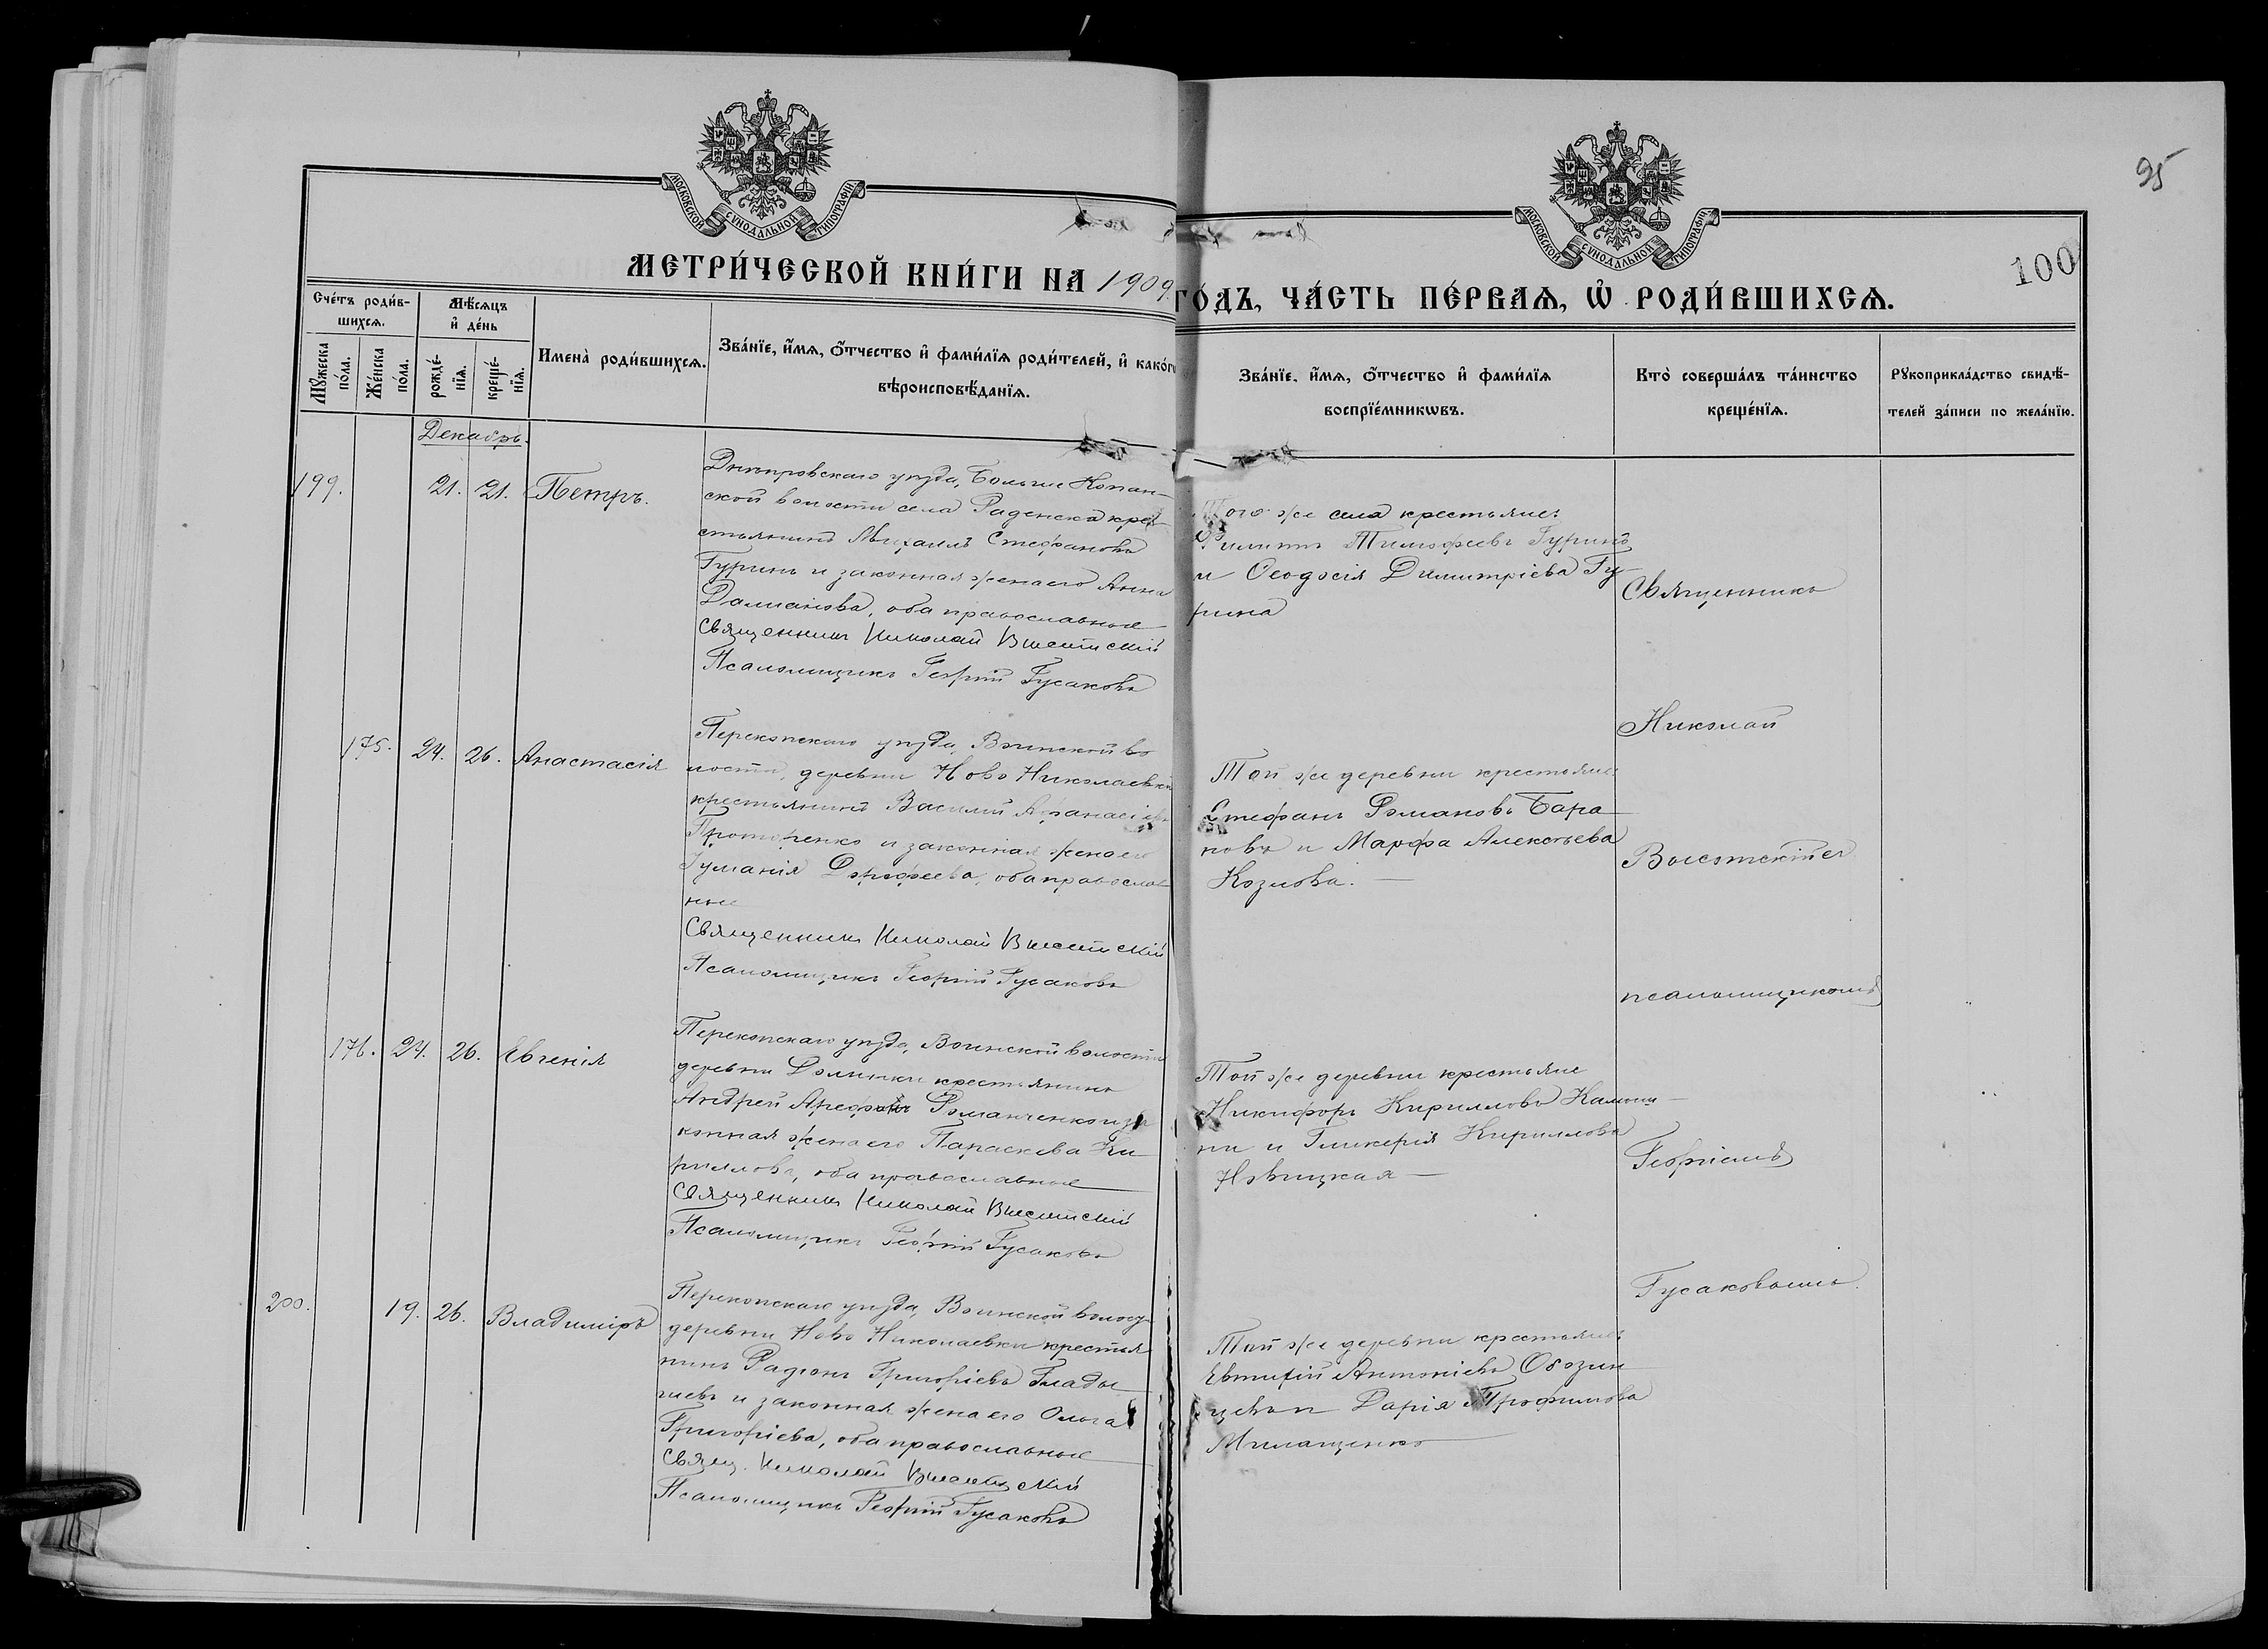 95
100
МОСКОВСКОЙ СѴНОДАЛЬНОЙ ТИПОГРАФІИ
МОСКОВСКОЙ СѴНОДАЛЬНОЙ ТИПОГРАФІИ
МЕТРИ́ЧЕСКОЙ КНИ́ГИ НА 1909
ГО́ДЪ, ЧА́СТЬ ПЕ́РВАѦ, Ѡ҆ РОДИ́ВШИХСѦ.
Сче́тъ роди́в-
шихсѧ.
Мꙋ́жеска
по́ла.
Же́нска
по́ла.
Мѣ́сѧцъ
и҆ де́нь
рожде́-
нїѧ.
креще́-
нїѧ.
Имена̀ роди́вшихсѧ.
Зва́нїе, и҆́мѧ, ѻ҆́тчество и҆ фами́лїѧ роди́телей, и҆ како́гѡ
вѣроисповѣ́данїѧ.
Зва́нїе, и҆́мѧ, ѻ҆́тчество и҆ фами́лїѧ
воспрїе́мникѡвъ.
Кто̀ соверша́лъ та́инство
креще́нїѧ.
Рꙋкоприкла́дство свидѣ́-
телей за́писи по жела́нїю.
Декабрь.
199.
21. 21. Петръ.
Днѣпровскаго уѣзда, Больше Копан-
ской волости села Раденска кре-
стьянинъ Михаилъ Стефановъ
Гуринъ и законная жена его Анна
Дамианова, оба православные
Священникъ Николай Высотскій
Псаломщикъ Георгій Гусаковъ
Того же села крестьяне:
Филиппъ Тимофеевъ Гуринъ
и Ѳеодосія Димитріева Гу-
рина
175. 24. 26. Анастасія
Перекопскаго уѣзда, Воинской во
лости, деревни Ново Николаевки
крестьянинъ Василій Афанасіевъ
и законная жена его
оба православ
ные
Священникъ Николай Высотскій
Псаломщикъ Георгій Гусаковъ
Той же деревни крестьяне:
Стефанъ Романовъ Бара
новъ и Марфа Алексѣева
Козлова.
176. 24. 26. Евгенія
Перекопскаго уѣзда, Воинской волости
деревни Долинки крестьянинъ
Андрей Романченко и за
конная жена его Параскева Ки
риллова, оба православные
Священникъ Николай Высотскій
Псаломщикъ Георгій Гусаковъ
Той же деревни крестьяне
Никифоръ Кирилловъ
и Гликерія Кириллова
200. 19. 26. Владиміръ
Перекопскаго уѣзда, Воинской волос
деревни Ново Николаевки крестья
нинъ Радіонъ Григоріевъ Глады
шевъ и законная жена его Ольга
Григоріева, оба православные
Свящ. Николай Высотскій
Псаломщикъ Георгій Гусаковъ
Той же деревни крестьяне:
Евтихій Антоніевъ Обозин
цевъ и Дарія Трофимова
Милащенко
Священникъ
Николай
Высотскій съ
псаломщикомъ
Георгіемъ
Гусаковымъ.